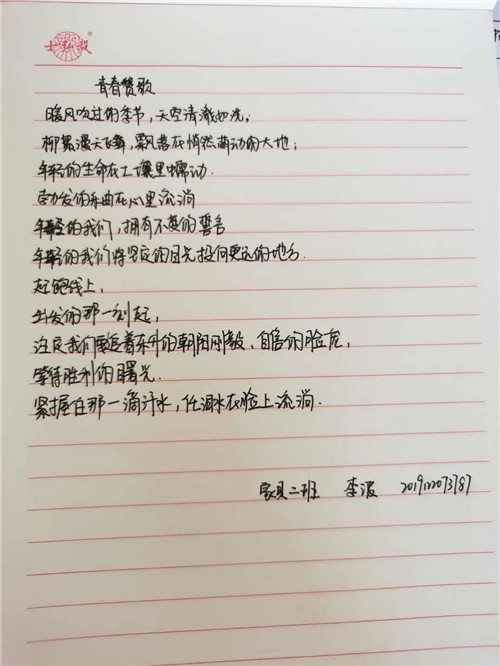 士力报®
青春赞歌
暖风吹过的季节,天空清澈如洗;
柳絮漫天飞舞,飘落在悄然萌动的大地;
年轻的生命在土壤里蠕动.
奋发的乐曲在心里流淌
年轻的我们,拥有不变的誓言
年轻的我们将坚定的目光投向更远的地方.
起跑线上,
出发的那一刻起,
注定我们要迎着东升的朝阳刚毅、自信的脸庞,
等待胜利的曙光.
紧握住那一滴汗水,任泪水在脸上流淌.
家具二班 李波 201912073787